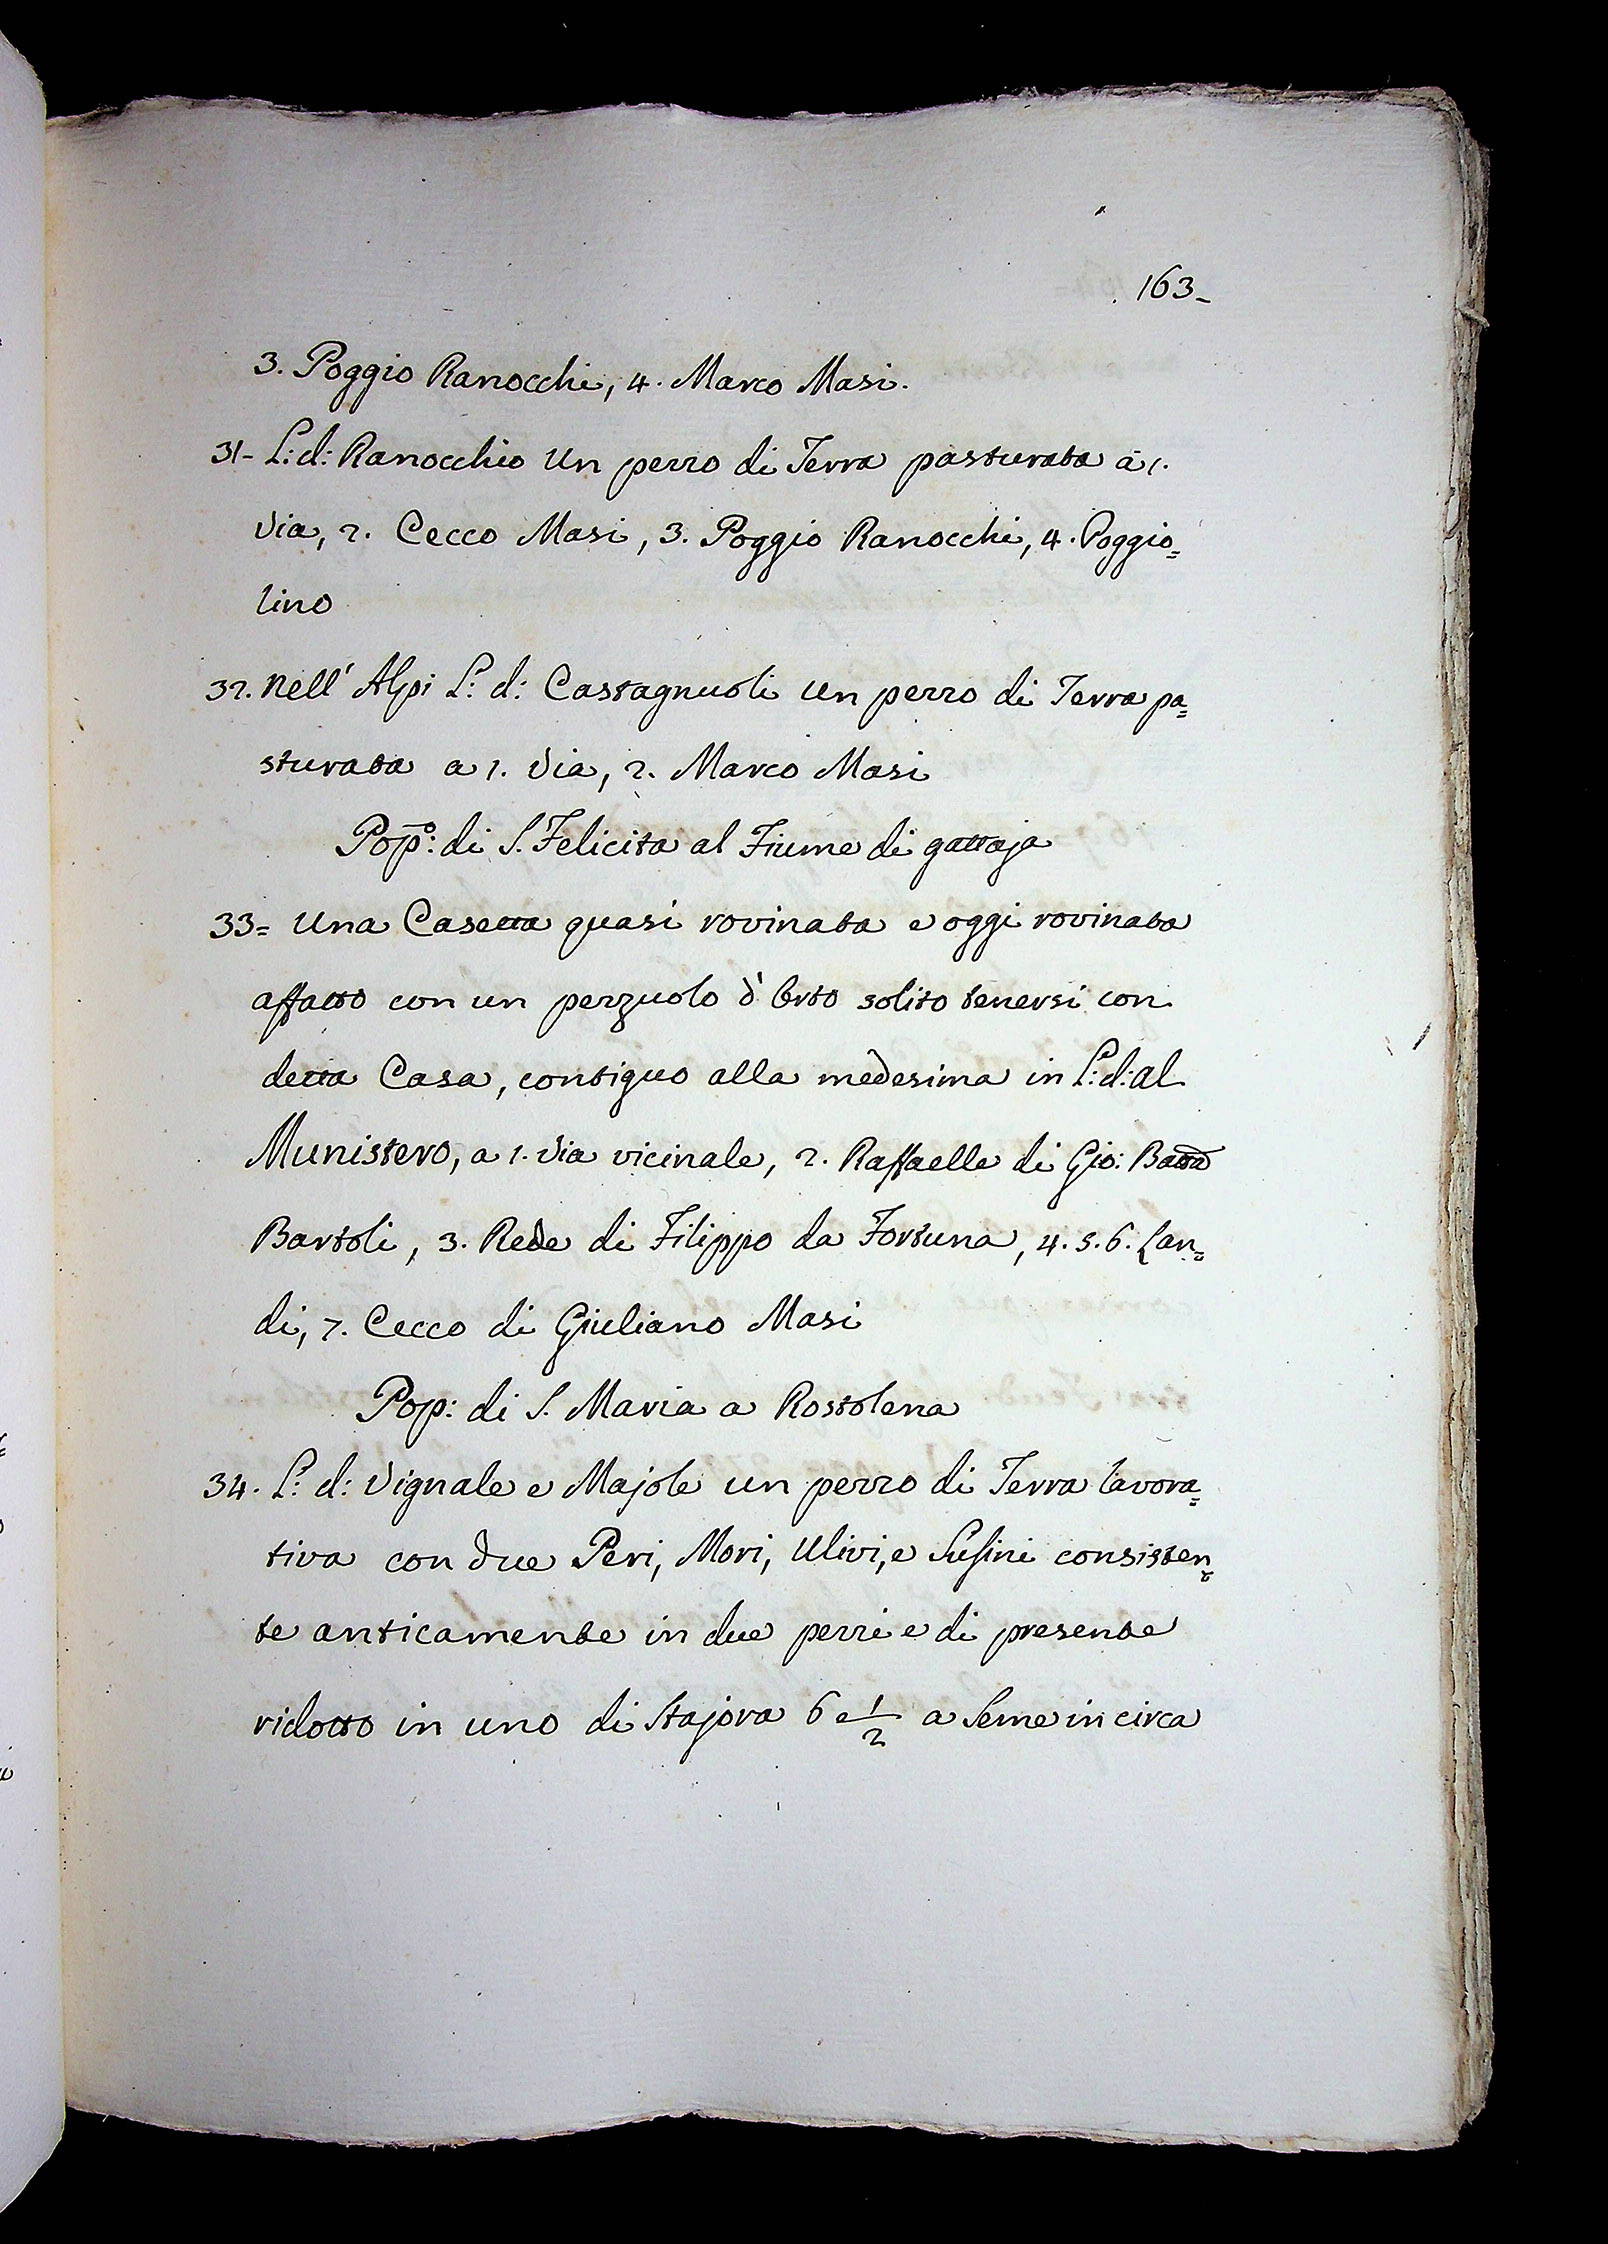 163-
3. Poggio Ranocchi, 4. Marco Masi.
31- L: d: Ranocchio Un pezzo di Terra pasturata a 1.
Via, 2. Cecco Masi, 3. Poggio Ranocchi, 4. Poggio=
lino
32. Nell' Alpi L: d: Castagnuoli un pezzo di Terra pa=
sturata a 1. Via, 2. Marco Masi
Pop̃o: di S. Felicita al Fiume di gattaja
33= Una Casetta quasi rovinata e oggi rovinata
affatto con un pezzuolo d' Orto solito tenersi con
detta Casa, contiguo alla medesima in L: d: al
Munistero, a 1. Via vicinale, 2. Raffaelle di Gio: Batta
Bartoli, 3. Rede di Filippo da Fortuna, 4. 5. 6. Lan=
di, 7. Cecco di Giuliano Masi
Pop: di S. Maria a Rostolena
34. L: d: Vignale e Majole un pezzo di Terra lavora=
tiva con due Peri, Mori, Ulivi, e Susini consisten=
te anticamente in due pezzi e di presente
ridotto in uno di Stajora 6 e 1/2 a Seme in circa